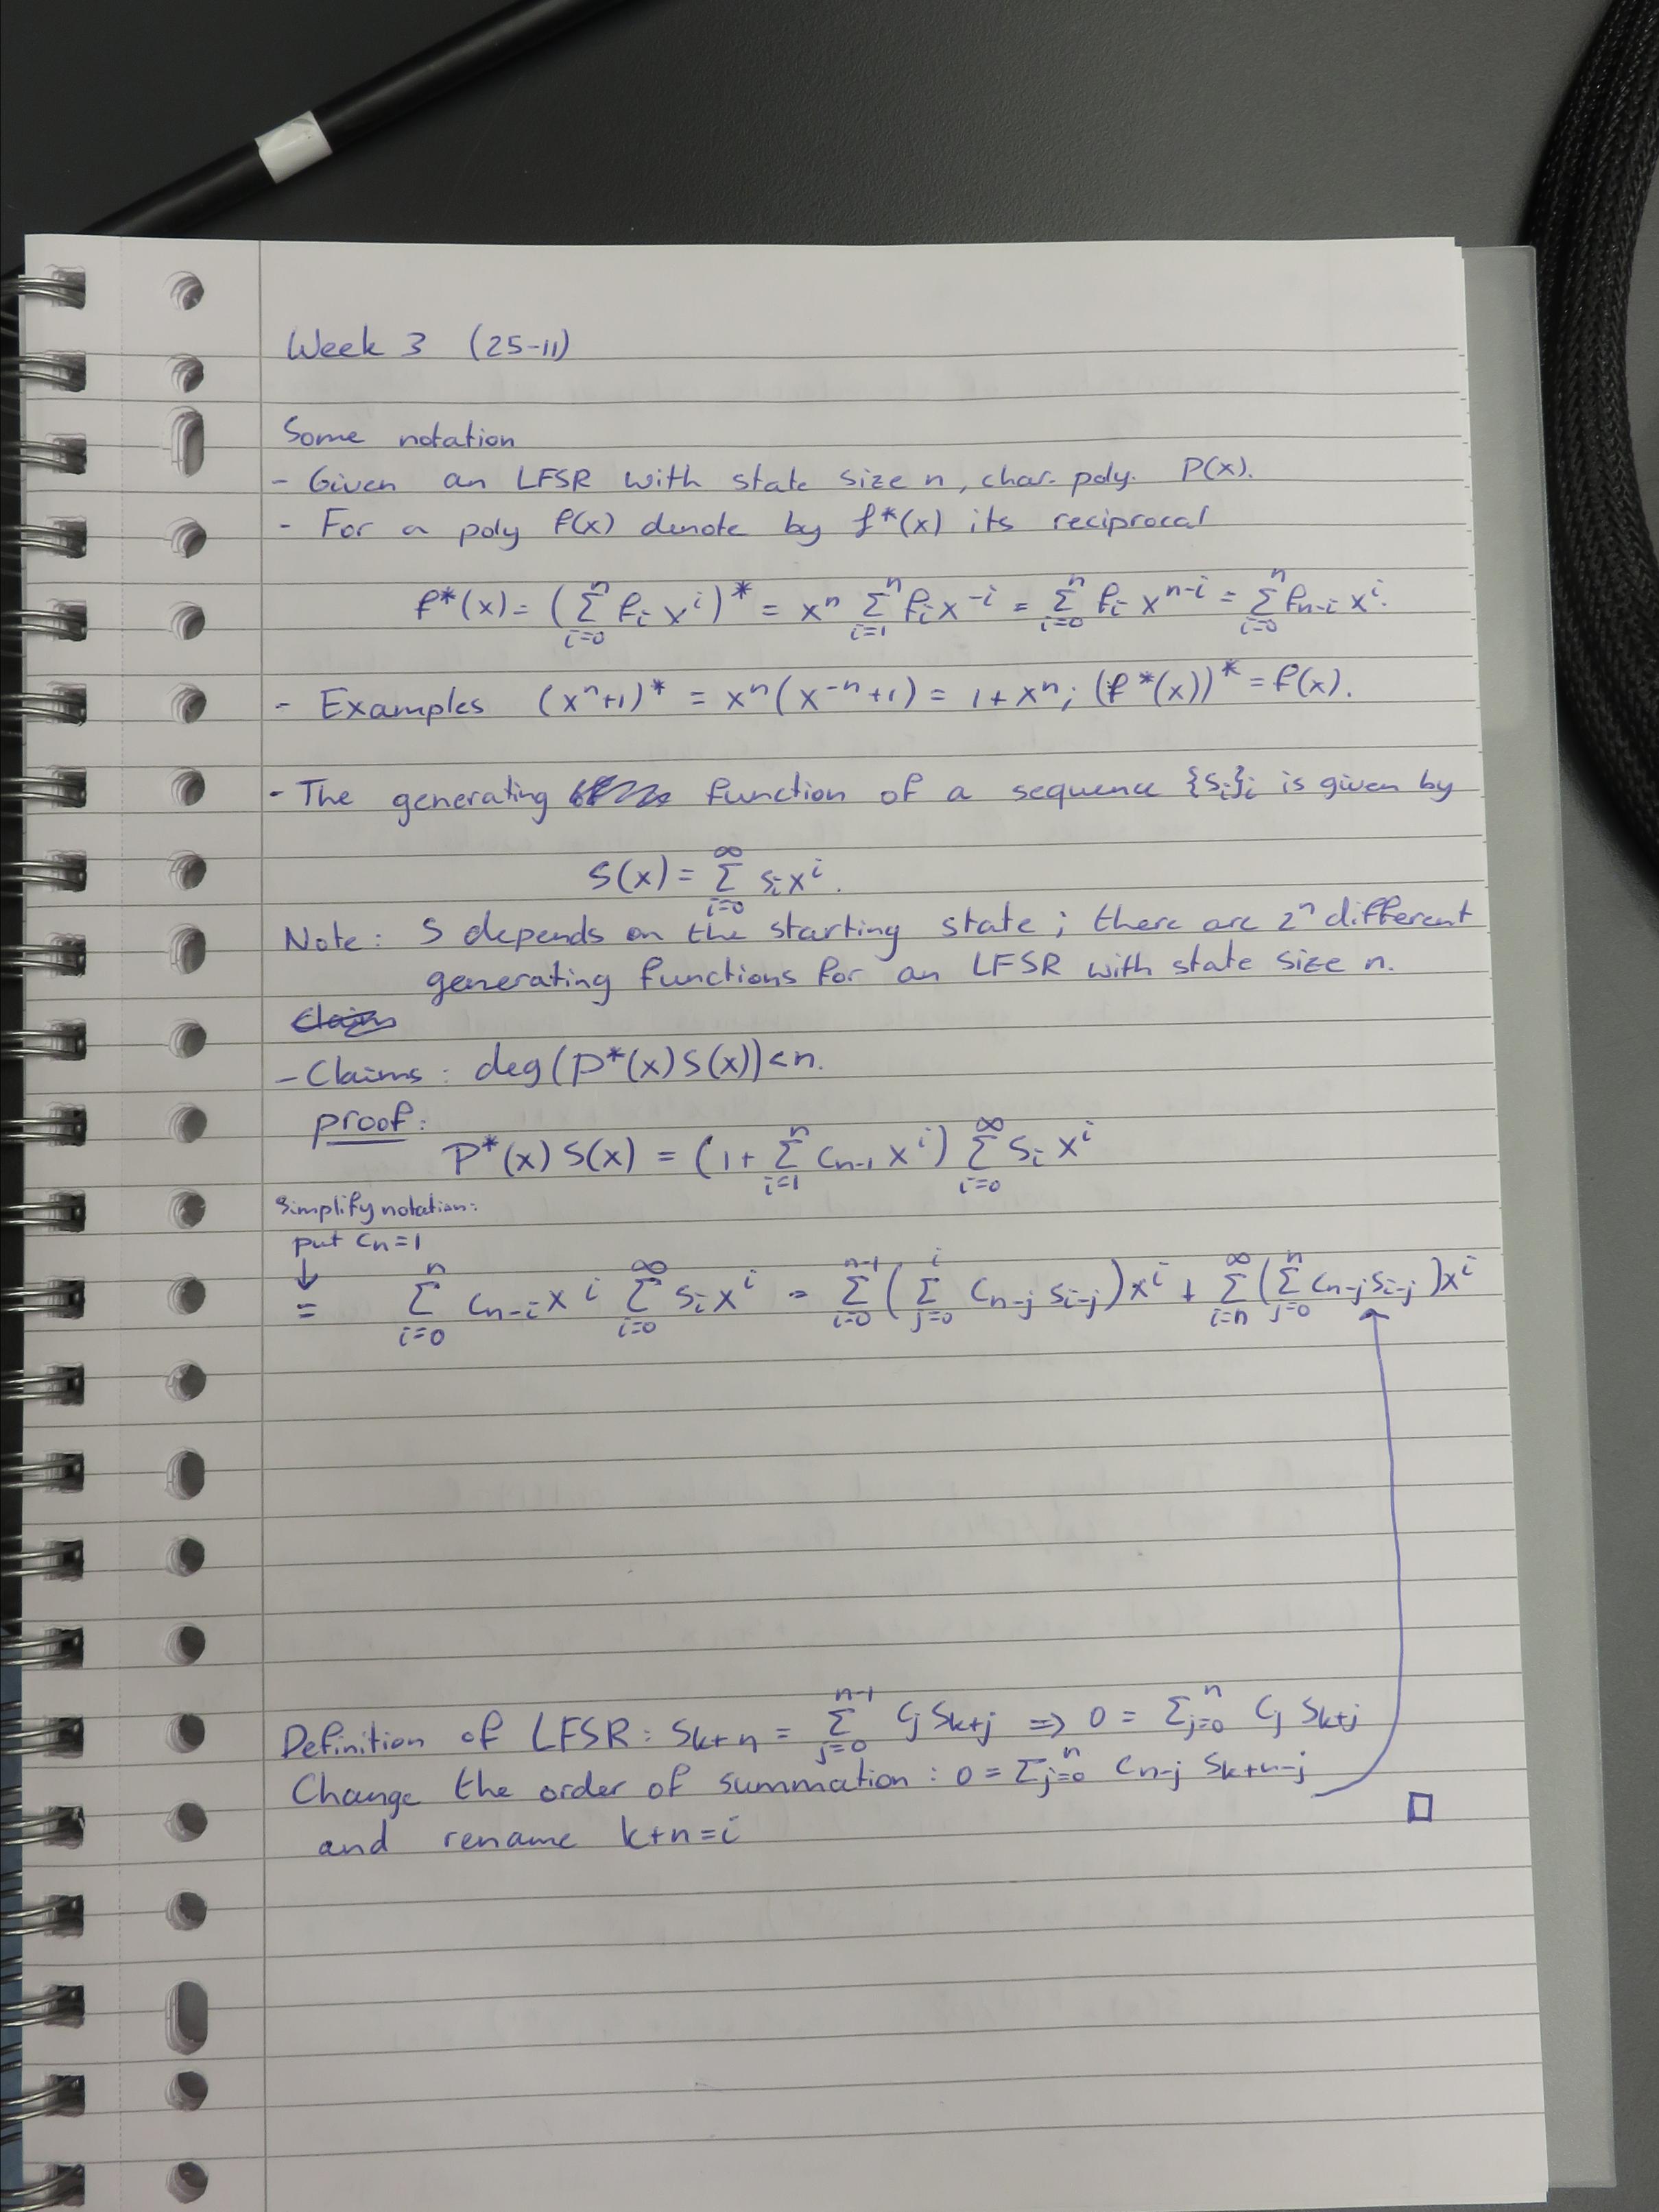 Week 3 (25-11)
Some notation
- Given an LFSR with state size n, char. poly. P(x).
- For a poly f(x) denote by f*(x) its reciprocal
f*(x) = (∑_{i=0}^{n} f_i x^i)* = x^n ∑_{i=1}^{n} f_i x^{-i} = ∑_{i=0}^{n} f_i x^{n-i} = ∑_{i=0}^{n} f_{n-i} x^i.
- Examples (x^n+1)* = x^n(x^{-n}+1) = 1+x^n; (f*(x))* = f(x).
- The generating function of a sequence {s_i}_i is given by
S(x) = ∑_{i=0}^{∞} s_i x^i.
Note: S depends on the starting state; there are 2^n different
generating functions for an LFSR with state size n.
Claim
- Claims: deg(P*(x)S(x)) < n.
proof:
P*(x) S(x) = (1 + ∑_{i=1}^{n} c_{n-1} x^i) ∑_{i=0}^{∞} s_i x^i
Simplify notation:
put c_n = 1
↓
= ∑_{i=0}^{n} c_{n-i} x^i ∑_{i=0}^{∞} s_i x^i = ∑_{i=0}^{n-1} (∑_{j=0}^{i} c_{n-j} s_{i-j}) x^i + ∑_{i=n}^{∞} (∑_{j=0}^{n} c_{n-j} s_{i-j}) x^i
Definition of LFSR: s_{k+n} = ∑_{j=0}^{n-1} c_j s_{k+j} ⇒ 0 = ∑_{j=0}^{n} c_j s_{k+j}
Change the order of summation: 0 = ∑_{j=0}^{n} c_{n-j} s_{k+n-j}
□
and rename k+n=i